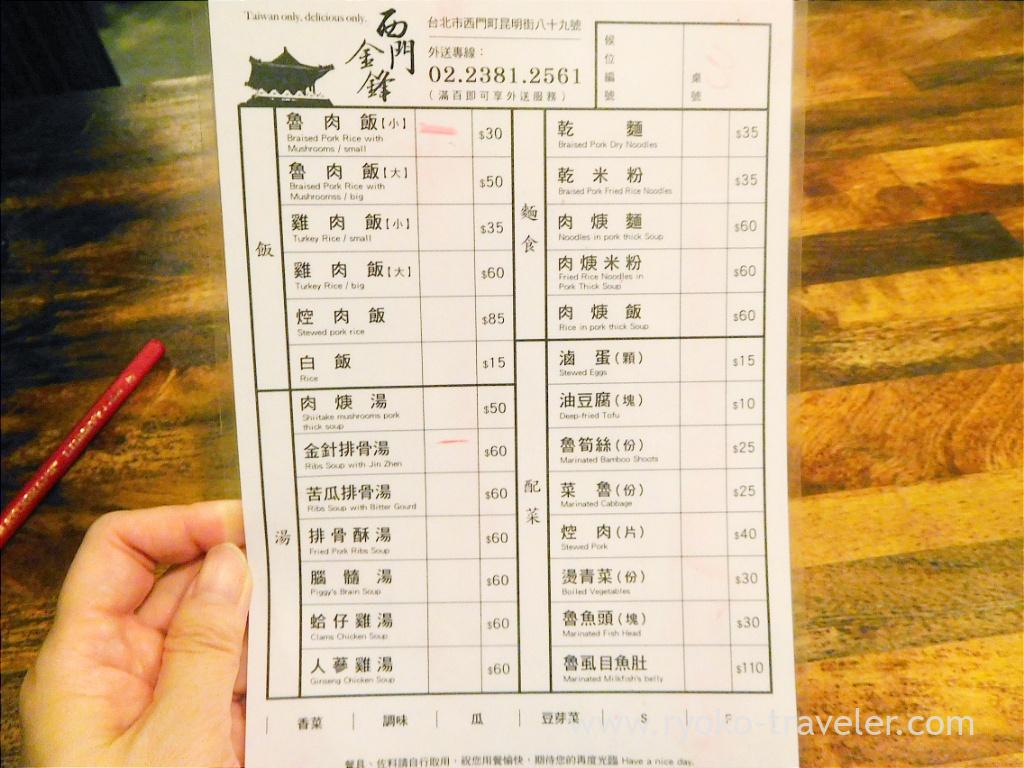 Taiwan only, delicious only.
西門
金鋒
台北市西門町昆明街八十九號
外送專線：
02.2381.2561
（滿百即可享外送服務）
候位編號
桌號
飯
魯肉飯【小】 $30
Braised Pork Rice with
Mushrooms / small
魯肉飯【大】 $50
Braised Pork Rice with
Mushroomss / big
雞肉飯【小】 $35
Turkey Rice / small
雞肉飯【大】 $60
Turkey Rice / big
焢肉飯 $85
Stewed pork rice
白飯 $15
Rice
湯
肉焿湯 $50
Shiitake mushrooms pork
thick soup
金針排骨湯 $60
Ribs Soup with Jin Zhen
苦瓜排骨湯 $60
Ribs Soup with Bitter Gourd
排骨酥湯 $60
Fried Pork Ribs Soup
腦髓湯 $60
Piggy's Brain Soup
蛤仔雞湯 $60
Clams Chicken Soup
人蔘雞湯 $60
Ginseng Chicken Soup
麵食
乾麵 $35
Braised Pork Dry Noodles
乾米粉 $35
Braised Pork Fried Rice Noodles
肉焿麵 $60
Noodles in pork thick Soup
肉焿米粉 $60
Fried Rice Noodles in
Pork Thick Soup
肉焿飯 $60
Rice in pork thick Soup
配菜
滷蛋（顆） $15
Stewed Eggs
油豆腐（塊） $10
Deep-fried Tofu
魯筍絲（份） $25
Marinated Bamboo Shoots
菜魯（份） $25
Marinated Cabbage
焢肉（片） $40
Stewed Pork
燙青菜（份） $30
Boiled Vegetables
魯魚頭（塊） $30
Marinated Fish Head
魯虱目魚肚 $110
Marinated Milkfish's belly
香菜 調味 瓜 豆芽菜 S P
餐具、佐料請自行取用，祝您用餐愉快，期待您的再度光臨 Have a nice day.
www.ryoko-traveler.com